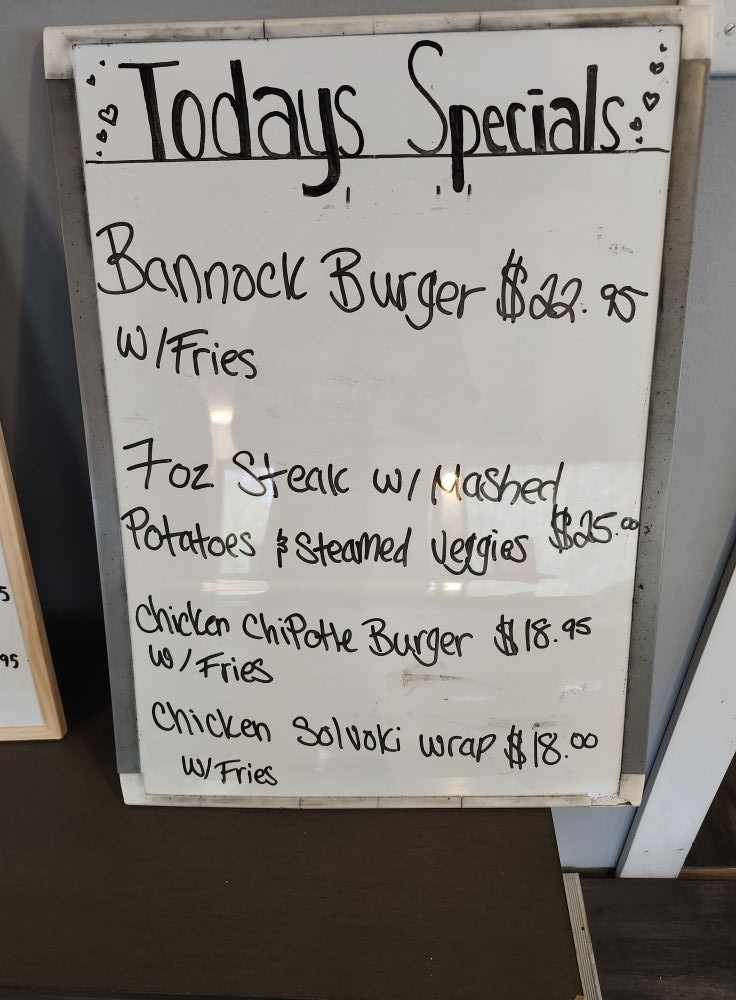 Todays Specials
Bannock Burger $22.95
W/Fries
7oz Steak w/ Mashed
Potatoes & Steamed Veggies $25.00
Chicken Chipotle Burger $18.95
W/Fries
Chicken Solvoki wrap $18.00
W/Fries
5
95